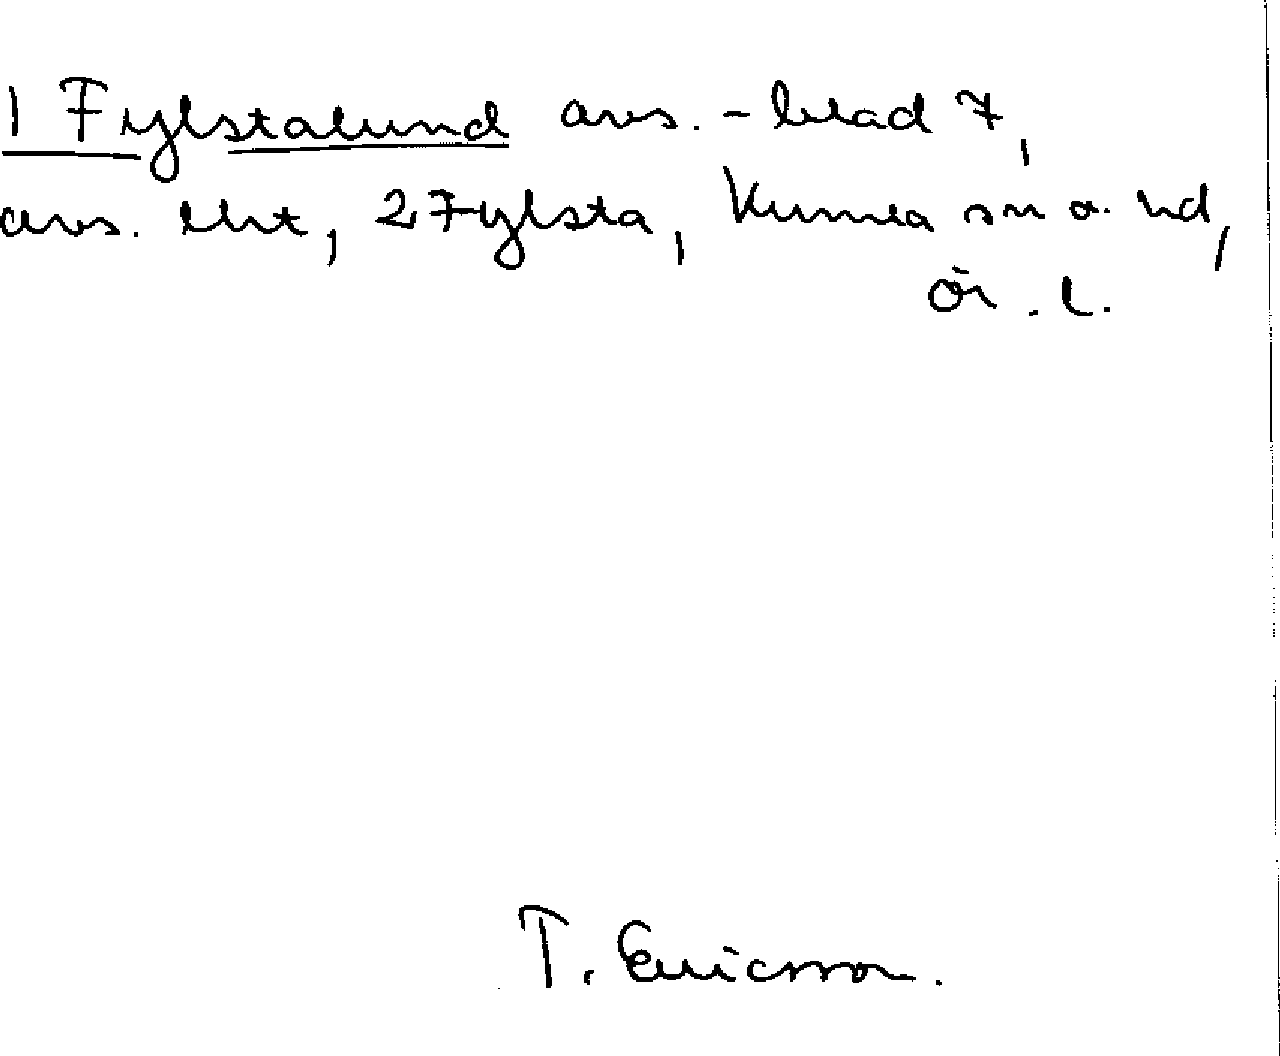 1 Fylstalund avs. - blad 7,
avs. lht, 2 Fylsta, Kumla sn o. hd,
Ör. l.
T. Ericsson.